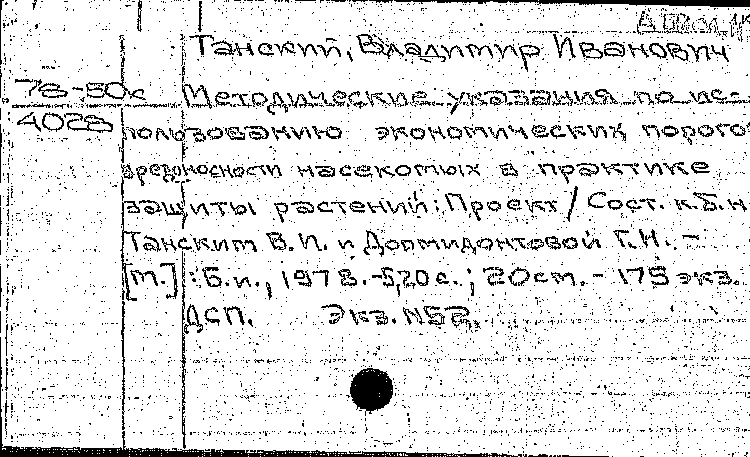 Танский, Владимир Иванович
78-50с
4028
Методические указания по ис-
пользованию экономических порогов
вредоносности насекомых в практике
защиты растений: Проект / Сост. к.б.н.
Танским В.И. и Долмидонтовой Г.Н. –
[м.] : Б.и., 1978. – 5,20 с.; 20 см. – 175 экз.
ДСП. Экз. N52.